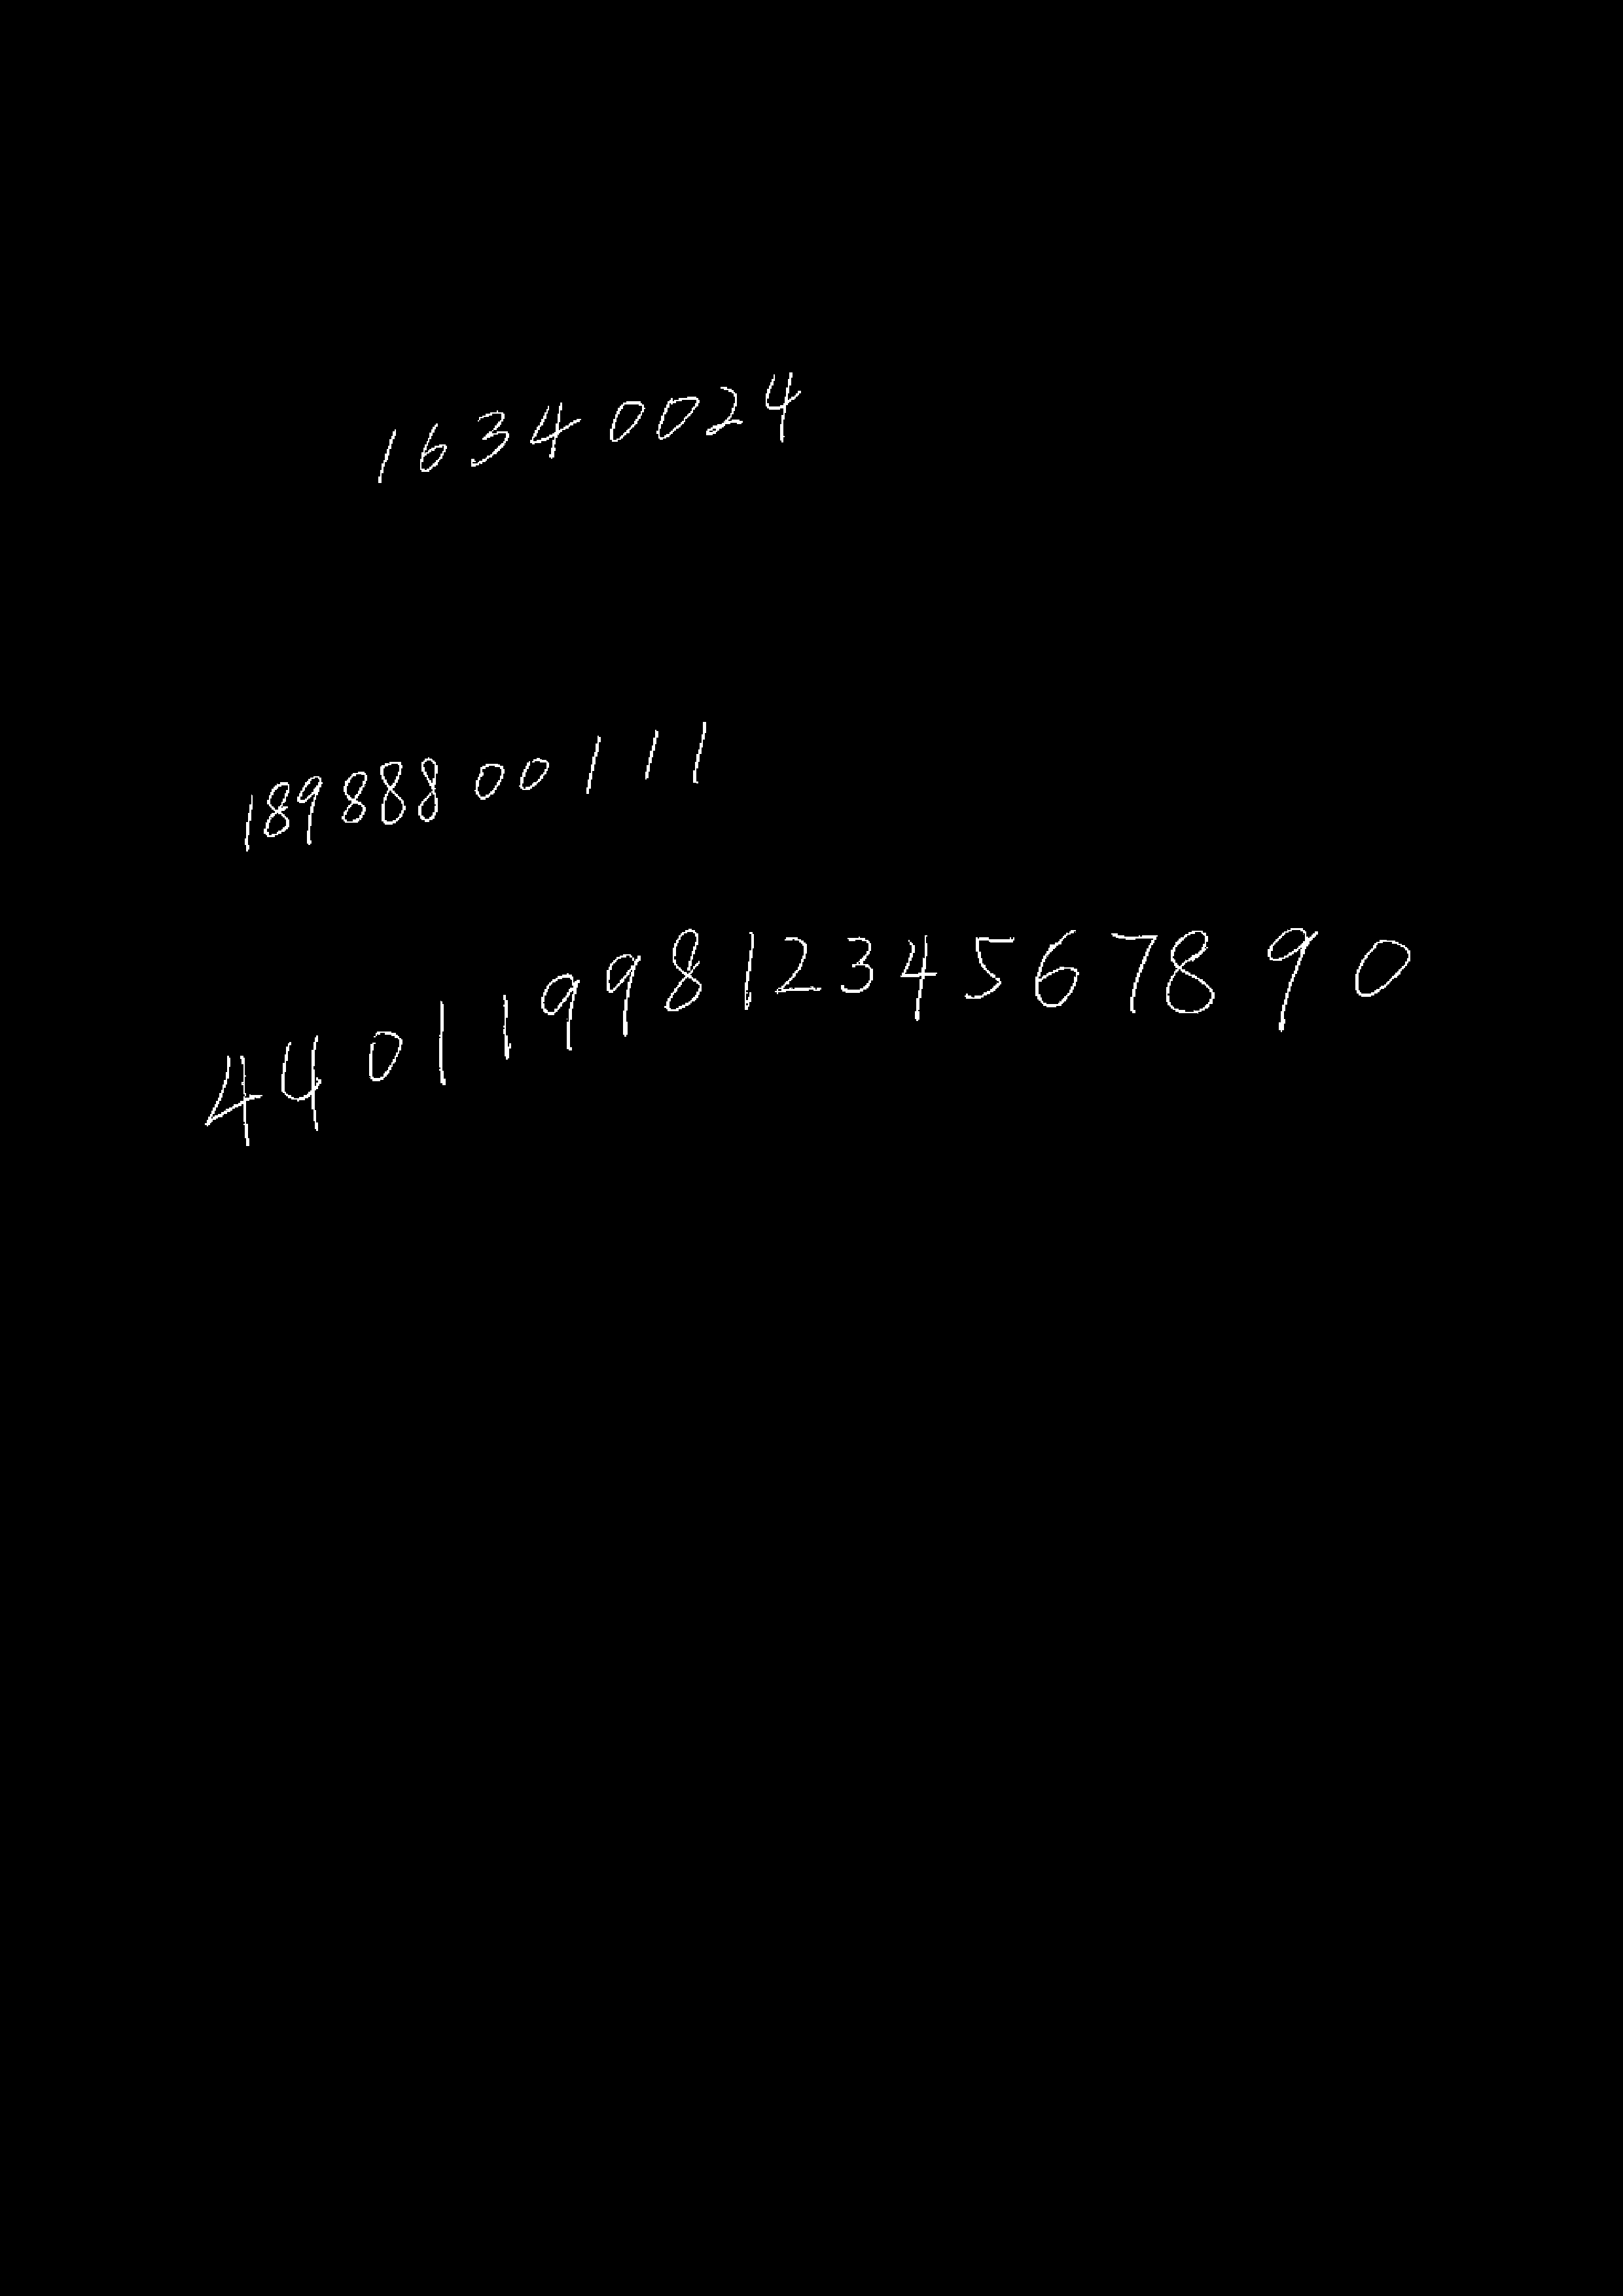 16340024
18988800111
440119981234567890